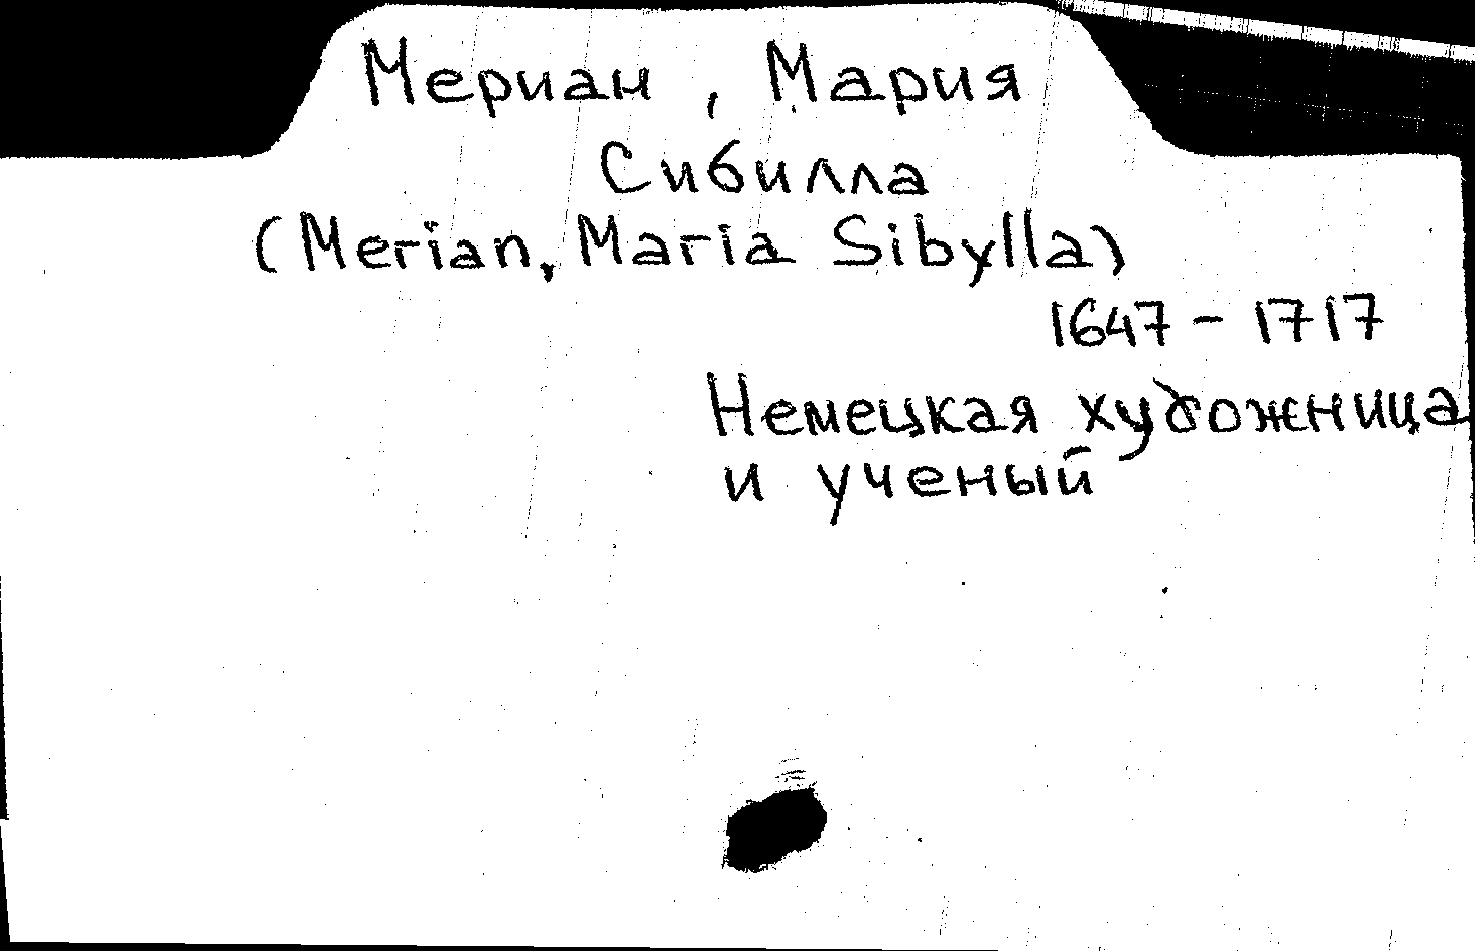 Мериан, Мария
Сибилла
(Merian, Maria Sibylla)
1647 - 1717
Немецкая художница
и ученый